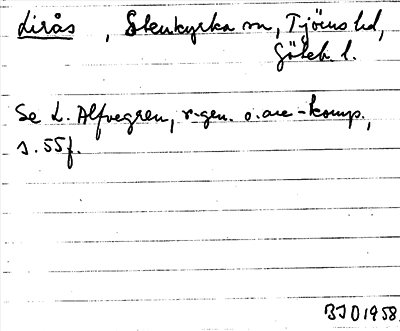 Lirås, Stenkyrka sn, Tjörns hd,
Göteb. l.
Se L. Alfvegren, r-gen. o. are-komp.,
s. 55f.
BJO 1958